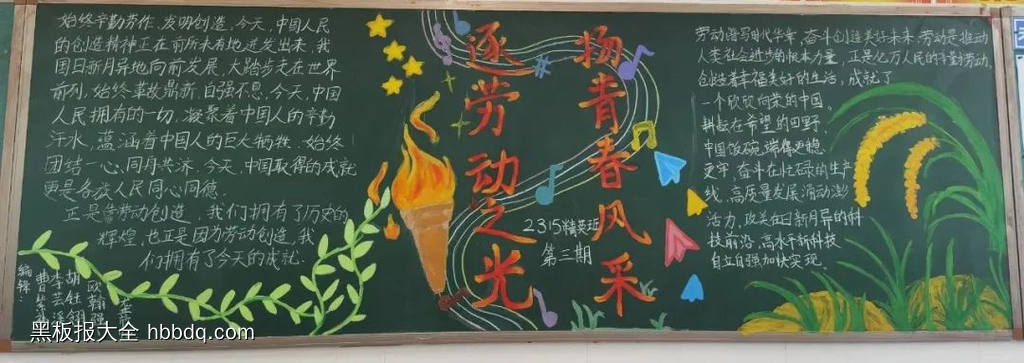 始终辛勤劳作、发明创造,今天,中国人民
的创造精神正在前所未有地迸发出来,我
国日新月异地向前发展,大踏步走在世界
前列,始终革故鼎新、自强不息,今天,中国
人民拥有的一切,凝聚着中国人的辛勤
汗水,蕴涵着中国人的巨大牺牲.始终
团结一心、同舟共济.今天,中国取得的成就
更是各族人民同心同德.
正是靠劳动创造,我们拥有了历史的
辉煌,也正是因为劳动创造,我
们拥有了今天的成就.
编辑:
逐劳动之光
扬青春风采
2315精英班
第三期
劳动谱写时代华章,奋斗创造美好未来.劳动是推动
人类社会进步的根本力量,正是亿万人民的辛勤劳动,
创造着幸福美好的生活,成就了
一个欣欣向荣的中国。
耕耘在希望的田野,
中国饭碗,端得更稳
更牢,奋斗在忙碌的生产
线,高质量发展,涌动澎
活力,攻关在日新月异的科
技前沿,高水平新科技
自立自强加快实现.
黑板报大全 hbbdq.com